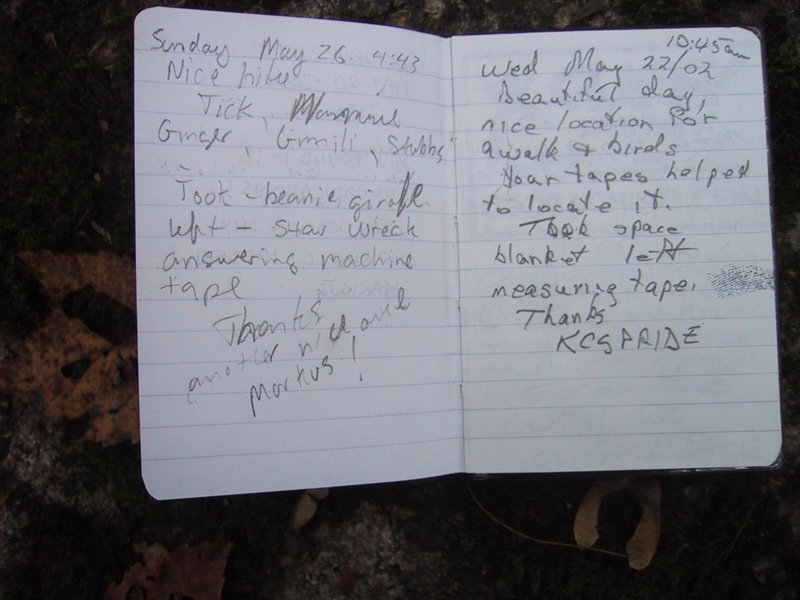 Sunday May 26. 4:43
Nice hike
Tick,
Ginger, Gimili, Stubbs
Took - beanie giraffe
left - star wreck
answering machine
tape
Thanks
another nice one
Markus!
10:45am
Wed May 22/02
Beautiful day,
nice location for
a walk & birds
Your tapes helped
to locate it.
Took space
blanket left
measuring tape.
Thanks
KCSPRIDE